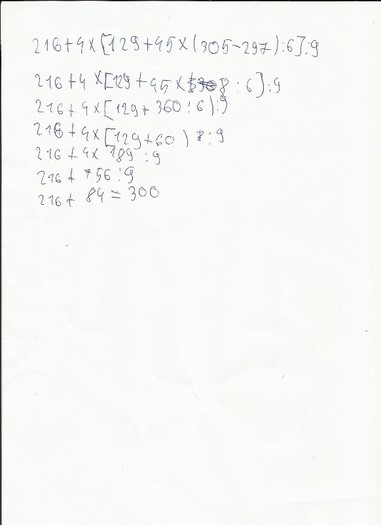 216+4×[129+45×(305-297):6]:9
216+4×[129+45×8:6]:9
216+4×[129+360:6):9
216+4×[129+60):9
216+4×189:9
216+756:9
216+84=300